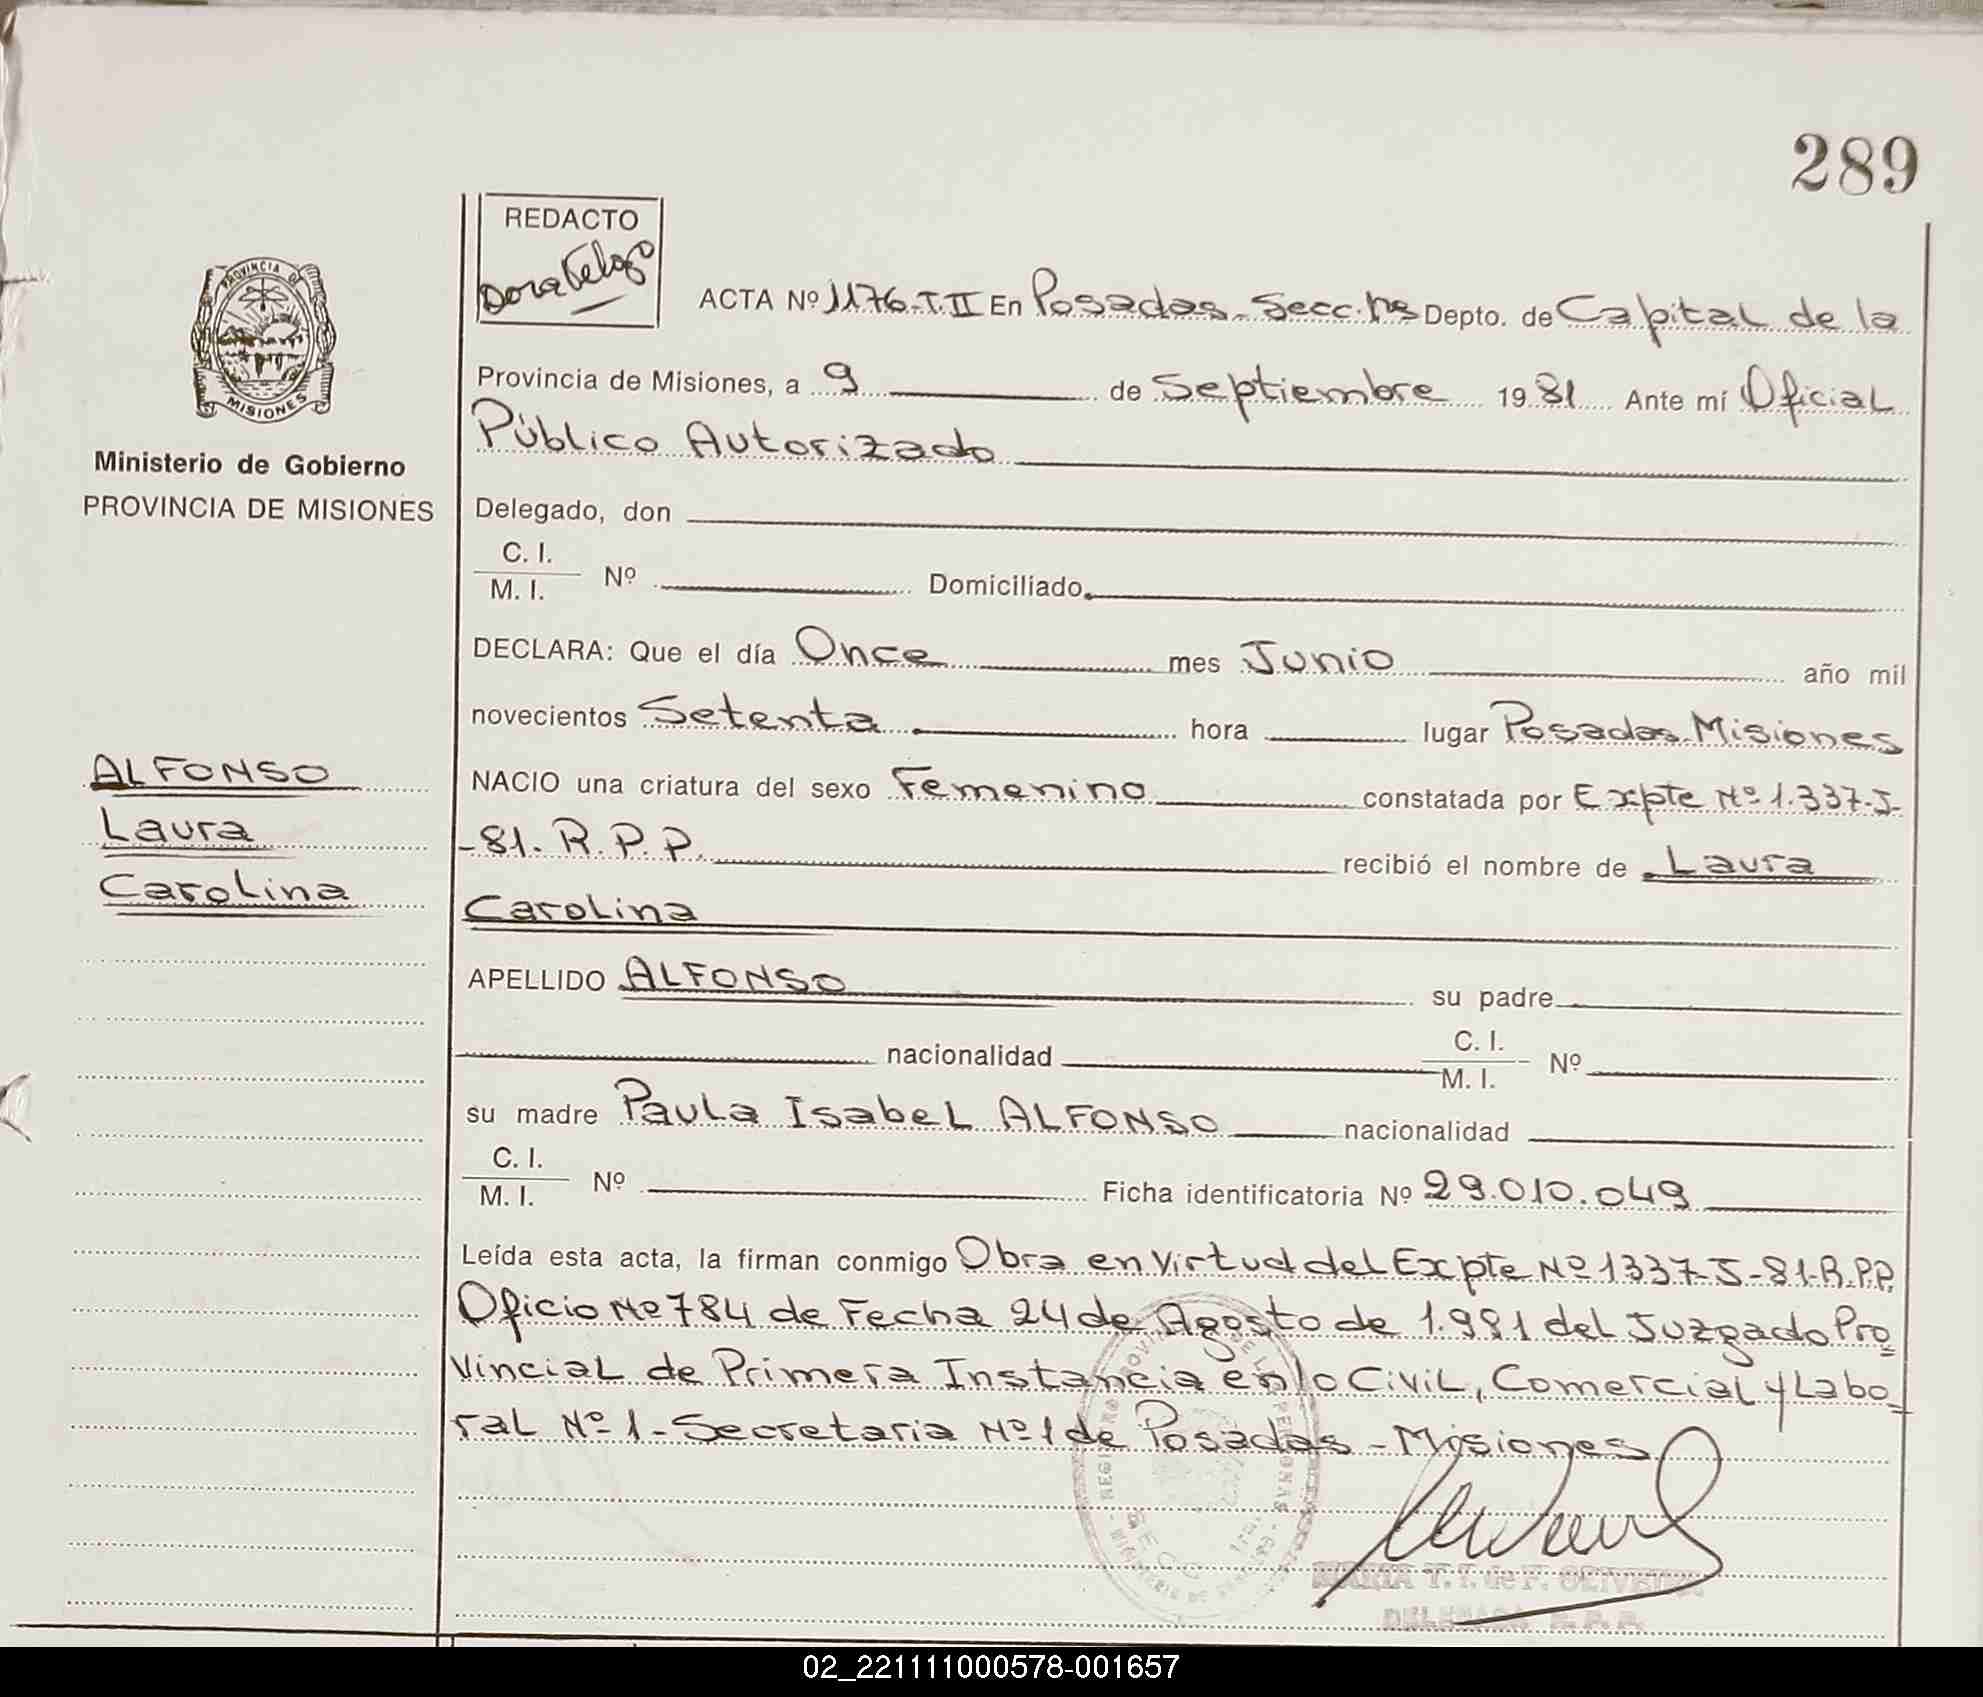 289
REDACTO
Dora Veloso
PROVINCIA DE
MISIONES
Ministerio de Gobierno
PROVINCIA DE MISIONES
ACTA Nº 1176-T.II En Posadas - Secc. Depto. de Capital de la
Provincia de Misiones, a 9 de Septiembre 1981 Ante mí Oficial
Público Autorizado
Delegado, don
C. I.
M. I. Nº Domiciliado
DECLARA: Que el día Once mes Junio año mil
novecientos Setenta hora lugar Posadas Misiones
ALFONSO
Laura
Carolina
NACIO una criatura del sexo Femenino constatada por Expte Nº 1.337-J-
-81. R.P.P. recibió el nombre de Laura
Carolina
APELLIDO ALFONSO su padre
nacionalidad C. I.
M. I. Nº
su madre Paula Isabel ALFONSO nacionalidad
C. I.
M. I. Nº Ficha identificatoria Nº 29.010.049
Leída esta acta, la firman conmigo Obra en virtud del Expte Nº 1337-J-81-R.P.P.
Oficio Nº 784 de Fecha 24 de Agosto de 1.981 del Juzgado Pro
vincial de Primera Instancia en lo Civil, Comercial y Labo-
ral Nº 1 - Secretaria Nº 1 de Posadas - Misiones
MARIA T. I. de F. OLIVEIRA
DELEGADA R. P. P.
02_221111000578-001657